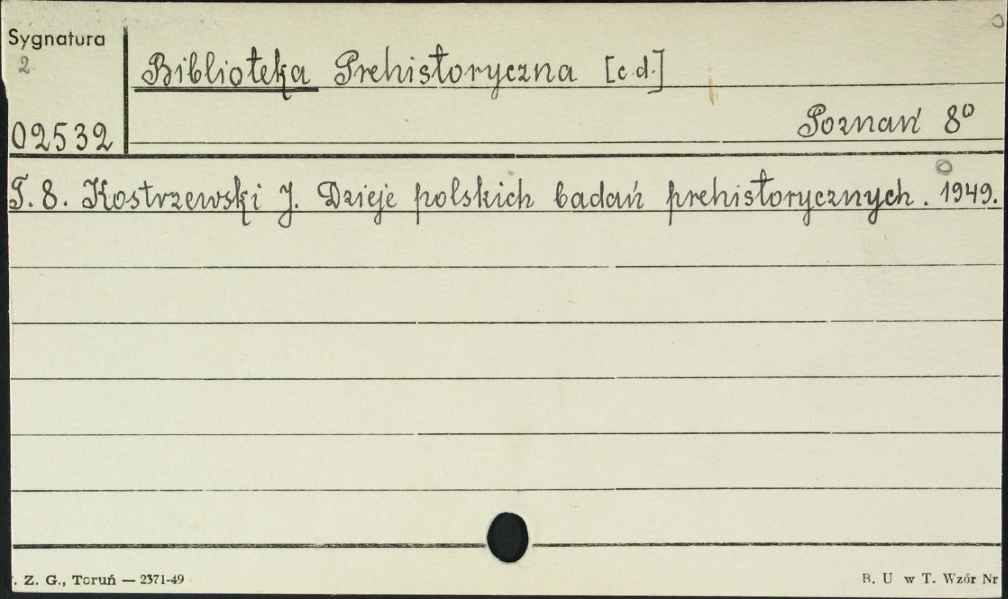 Sygnatura
2
Biblioteka Prehistoryczna [c.d.]
02532
Poznań 8º
T. 8. Kostrzewski J. Dzieje polskich badań prehistorycznych. 1949.
. Z. G., Toruń — 2371-49
B. U w T. Wzór Nr